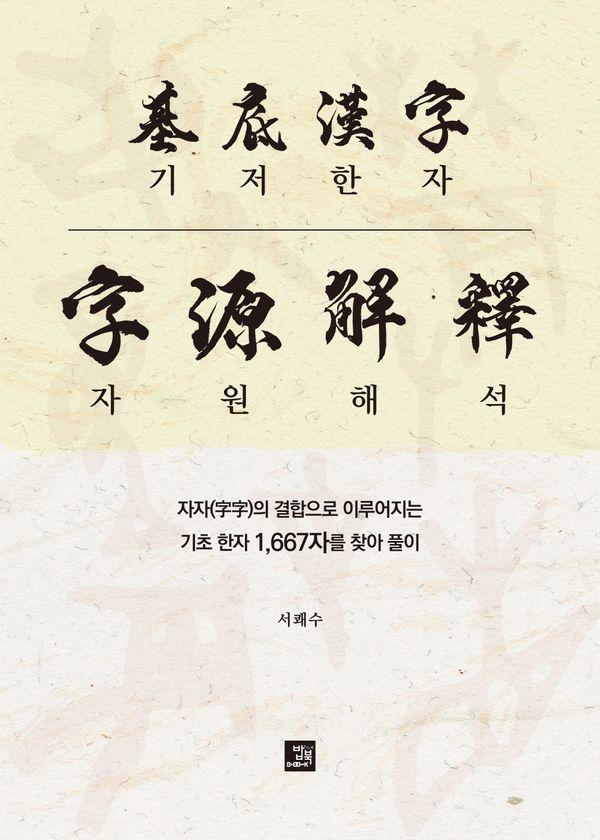 基底漢字
기저한자
字源解釋
자원해석
자자(字字)의 결합으로 이루어지는
기초 한자 1,667자를 찾아 풀이
서쾌수
밥북
B·OO·K